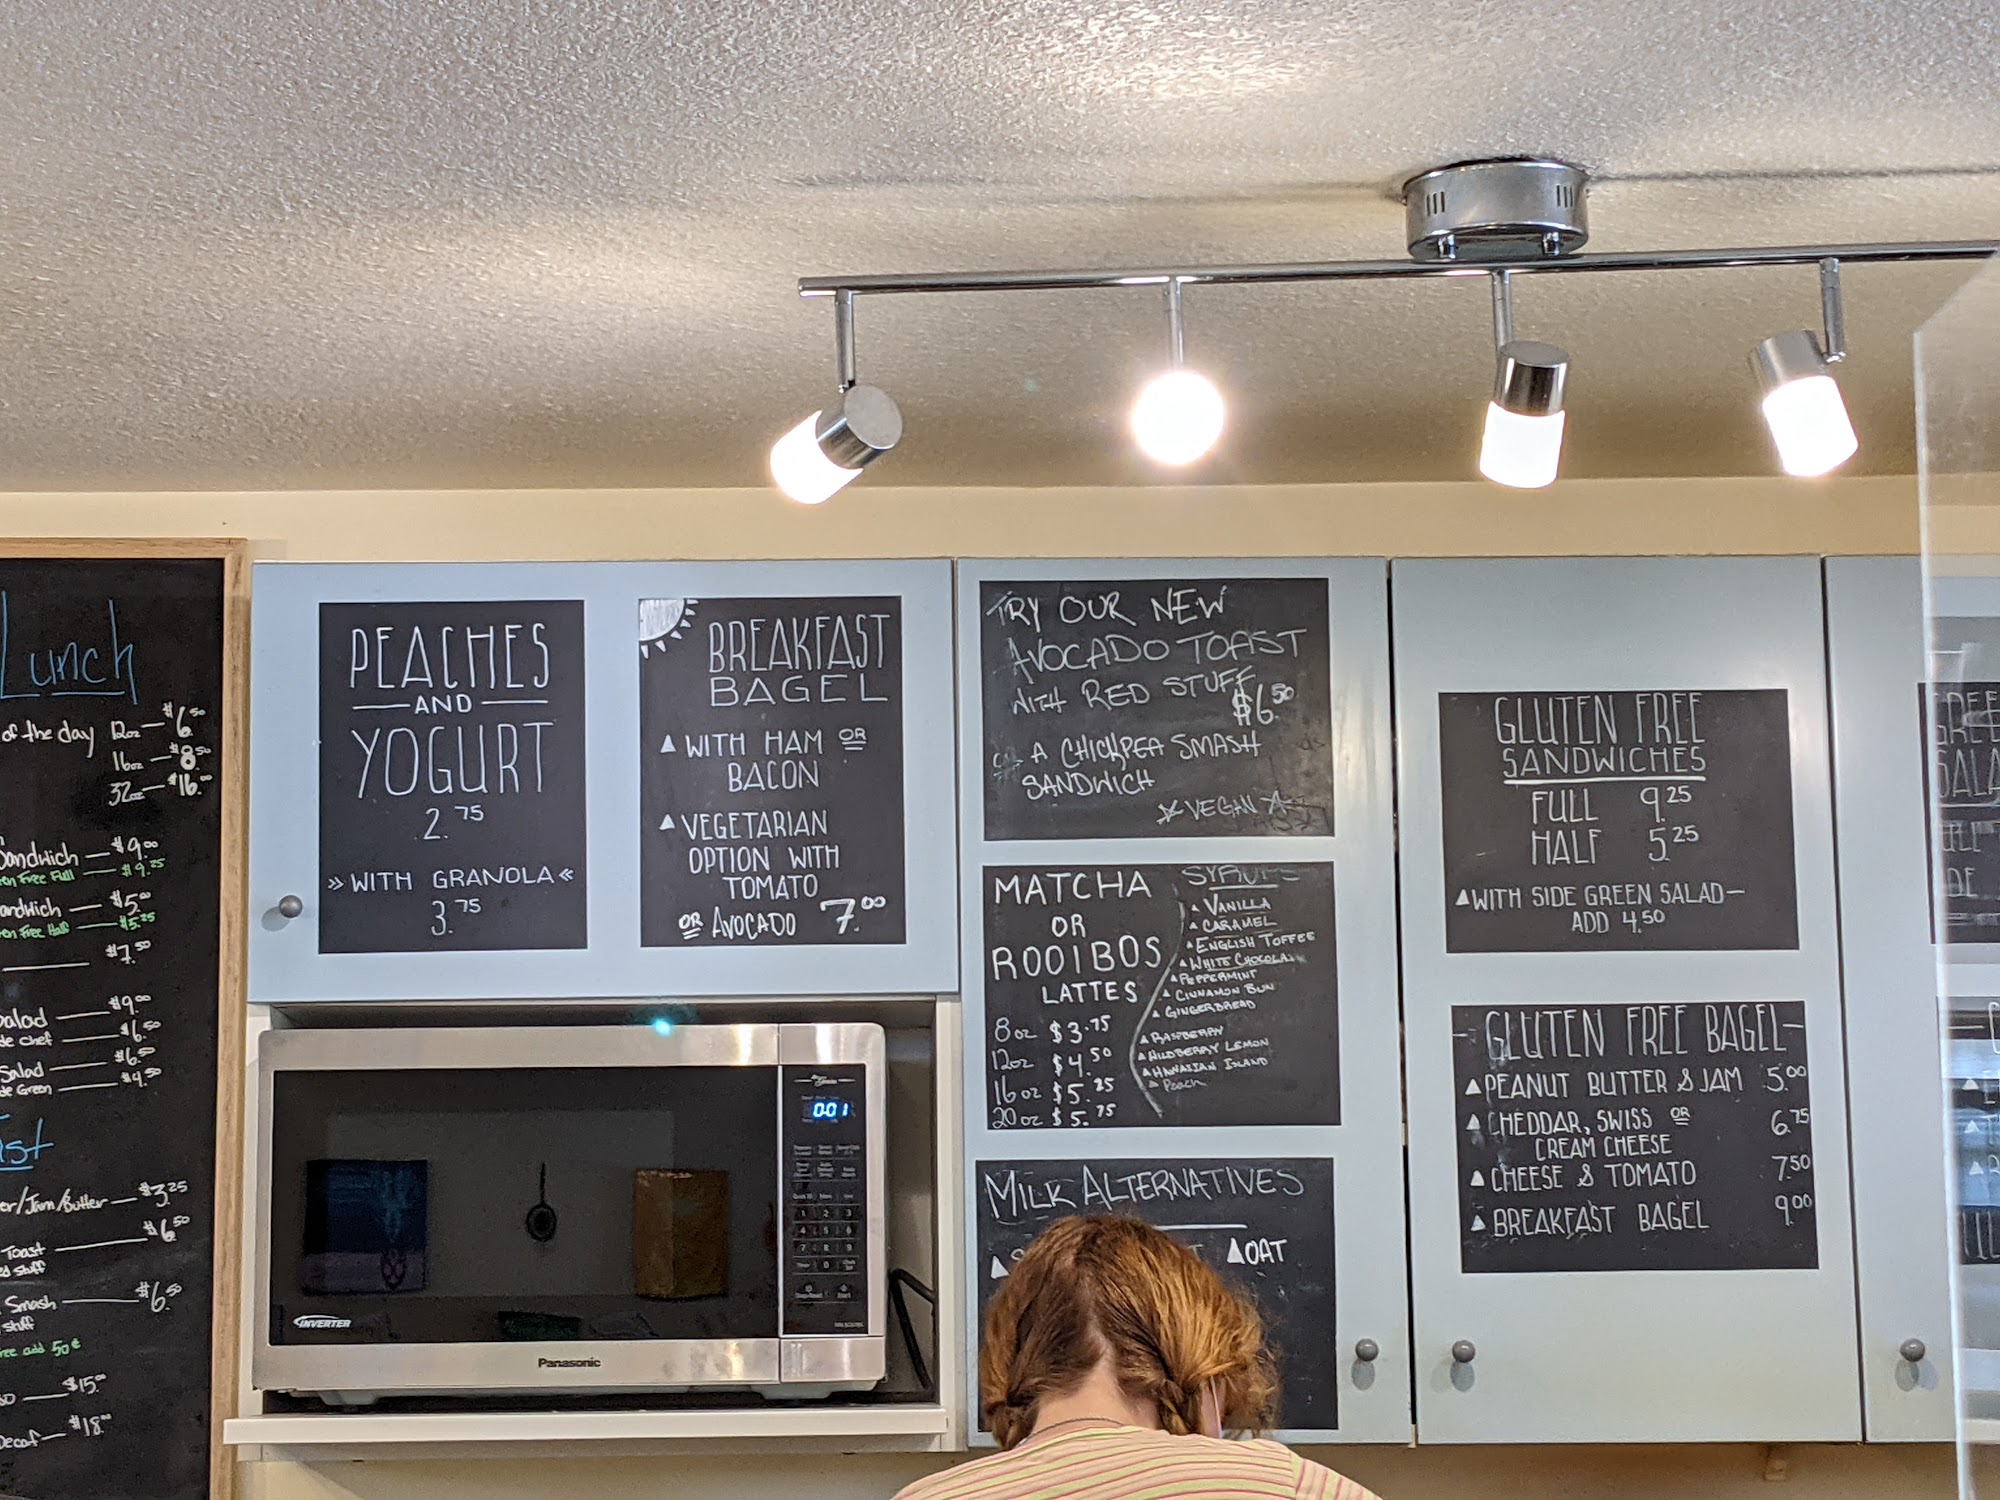 Lunch
of the day 12oz — $6.50
16oz — $8.50
32oz — $16.00
Sandwich — $9.00
Free Full — $9.25
— $5.00
Free Half — $5.25
$7.50
Salad — $9.00
Chef — $6.50
Salad — $6.50
Green — $4.50
/Jam/Butter — $3.25
Toast — $6.50
stuff
Smash — $6.50
stuff
add 50¢
$15.00
Decaf — $18.00
PEACHES
— AND —
YOGURT
2.75
» WITH GRANOLA «
3.75
BREAKFAST
BAGEL
▲ WITH HAM OR
BACON
▲ VEGETARIAN
OPTION WITH
TOMATO
OR AVOCADO 7.00
TRY OUR NEW
AVOCADO TOAST
WITH RED STUFF
$6.50
OR A CHICKPEA SMASH
SANDWICH
☆ VEGAN ☆
MATCHA
OR
ROOIBOS
LATTES
8oz $3.75
12oz $4.50
16oz $5.25
20oz $5.75
SYRUPS
▲ VANILLA
▲ CARAMEL
▲ ENGLISH TOFFEE
▲ WHITE CHOCOLA
▲ PEPPERMINT
▲ CINNAMON BUN
▲ GINGERBREAD
▲ RASPBERRY
▲ WILDBERRY LEMON
▲ HAWAIIAN ISLAND
▲ Peach
MILK ALTERNATIVES
▲ OAT
GLUTEN FREE
SANDWICHES
FULL 9.25
HALF 5.25
▲ WITH SIDE GREEN SALAD—
ADD 4.50
— GLUTEN FREE BAGEL —
▲ PEANUT BUTTER & JAM 5.00
▲ CHEDDAR, SWISS OR 6.75
CREAM CHEESE
▲ CHEESE & TOMATO 7.50
▲ BREAKFAST BAGEL 9.00
0:01
INVERTER
Panasonic